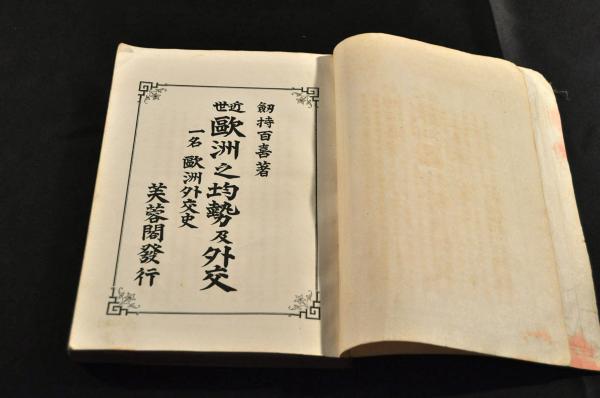 劔持百喜著
近世 歐洲之均勢及外交
一名 歐洲外交史
芙蓉閣發行